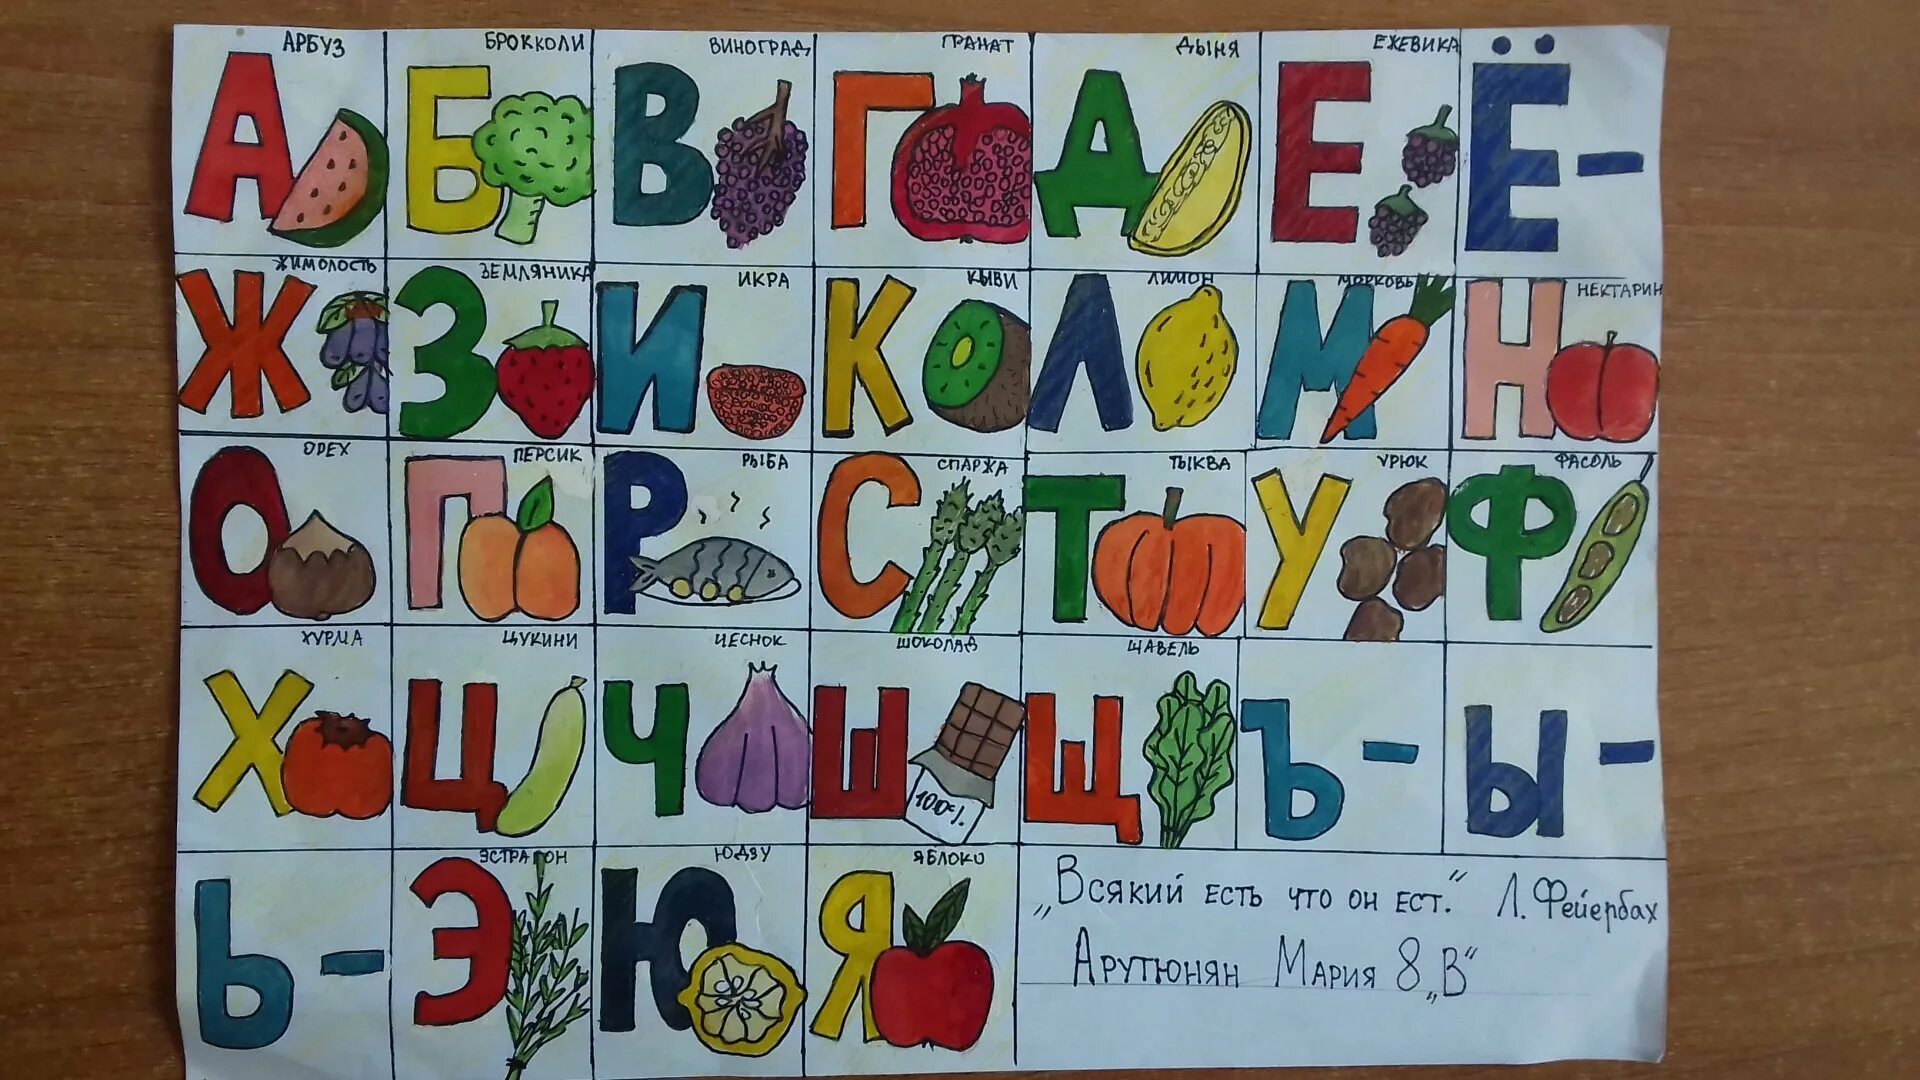 АРБУЗ БРОККОЛИ ВИНОГРАД ГРАНАТ ДЫНЯ ЕЖЕВИКА
А Б В Г Д Е Ё -
ЖИМОЛОСТЬ ЗЕМЛЯНИКА ИКРА КЫВИ ЛИМОН МОРКОВЬ НЕКТАРИН
Ж З И К Л М Н
ОРЕХ ПЕРСИК РЫБА СПАРЖА ТЫКВА УРЮК ФАСОЛЬ
О П Р С Т У Ф
ХУРМА ЦУКИНИ ЧЕСНОК ШОКОЛАД ЩАВЕЛЬ
Х Ц Ч Ш Щ Ъ - Ы -
100%
ЭСТРАГОН ЮДЗУ ЯБЛОКО
Ь - Э Ю Я
„Всякий есть что он ест.“ Л. Фейербах
Арутюнян Мария 8 „В“